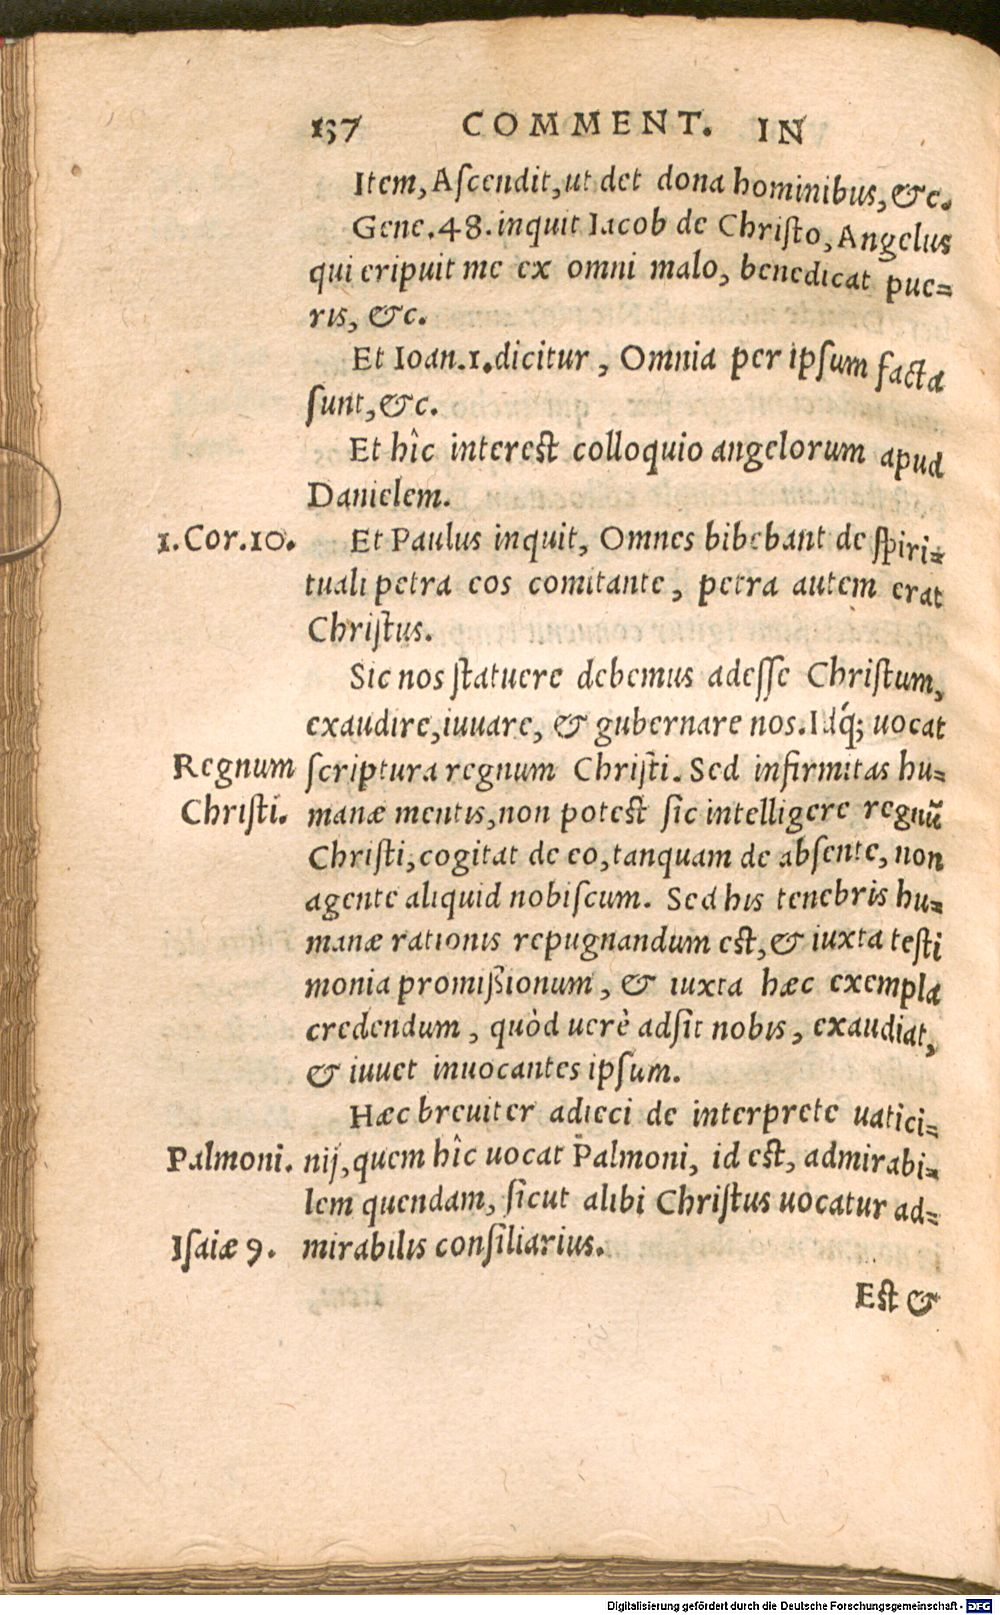 137 COMMENT. IN
Item, Aſcendit, ut det dona hominibus, &c.
Gene. 48. inquit Iacob de Chriſto, Angelus
qui eripuit me ex omni malo, benedicat pue=
ris, &c.
Et Ioan. 1. dicitur, Omnia per ipſum facta
ſunt, &c.
Et hîc intereſt colloquio angelorum apud
Danielem.
1. Cor. 10. Et Paulus inquit, Omnes bibebant de ſpiri=
tuali petra eos comitante, petra autem erat
Chriſtus.
Sic nos ſtatuere debemus adeſſe Chriſtum,
exaudire, iuuare, & gubernare nos. Idq́; uocat
Regnum ſcriptura regnum Chriſti. Sed infirmitas hu=
Chriſti. manæ mentis, non poteſt ſic intelligere regnũ
Chriſti, cogitat de eo, tanquam de abſente, non
agente aliquid nobiſcum. Sed his tenebris hu=
manæ rationis repugnandum eſt, & iuxta teſti
monia promißionum, & iuxta hæc exempla
credendum, quòd uerè adſit nobis, exaudiat,
& iuuet inuocantes ipſum.
Hæc breuiter adieci de interprete uatici=
Palmoni. nij, quem hîc uocat Palmoni, id eſt, admirabi=
lem quendam, ſicut alibi Chriſtus uocatur ad=
Iſaiæ 9. mirabilis conſiliarius.
Eſt &
Digitalisierung gefördert durch die Deutsche Forschungsgemeinschaft - DFG